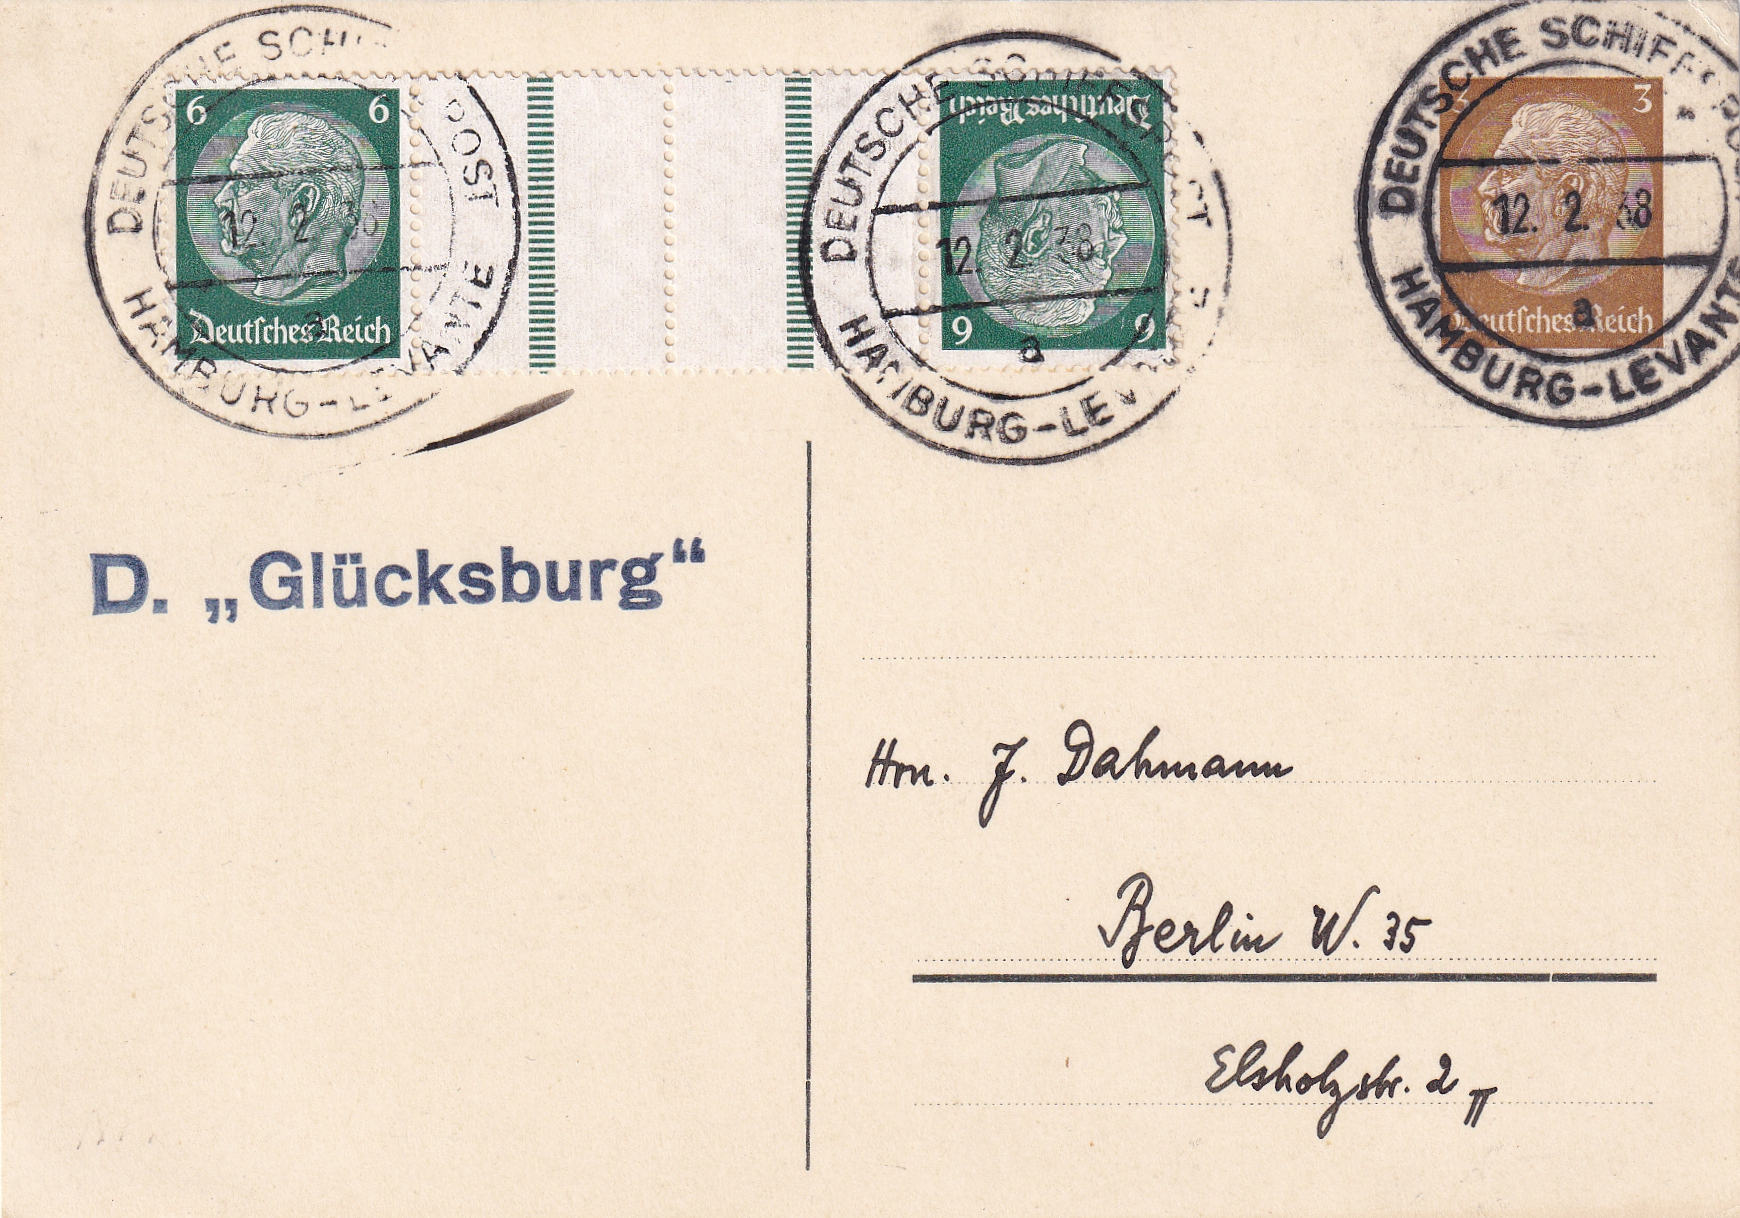 DEUTSCHE SCHIFFSPOST
HAMBURG-LEVANTE
12. 2. 38
a
6 6
Deutsches Reich
DEUTSCHE SCHIFFSPOST
HAMBURG-LEVANTE
12. 2. 38
a
6 6
Deutsches Reich
DEUTSCHE SCHIFFSPOST
HAMBURG-LEVANTE
12. 2. 38
a
3 3
Deutsches Reich
D. „Glücksburg“
Hrn. J. Dahmann
Berlin W. 35
Elsholzstr. 2 II